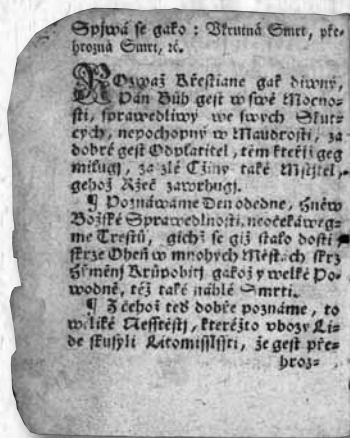 Spjwá se gako : Vkrutná Smrt, pře-
hrozná Smrt, ꝛc.
ROzwaž Křestiane gak diwný,
Pán Bůh gest w swé Mocno-
sti, sprawedliwý we swých Skut-
cých, nepochopný w Maudrosti, za
dobré gest Odplatitel, těm kteřj geg
milugj, za zlé Cžiny také Mstjtel,
gehož Ržeč zawrhugj.
¶ Poznáwáme Den odedne, Hněw
Božské Sprawedlnosti, neočekáweg-
me Trestů, gichž se giž stalo dosti
skrze Oheň w mnohých Městech skrz
Hřměnj Krůpobitj gakož y welké Po-
wodně, též také náhlé Smrti.
¶ Z čehož teď dobře poznáme, to
weliké Nesstěstj, kteréžto vbozý Li-
de skusyli Litomisslsstj, že gest pře-
hroz-